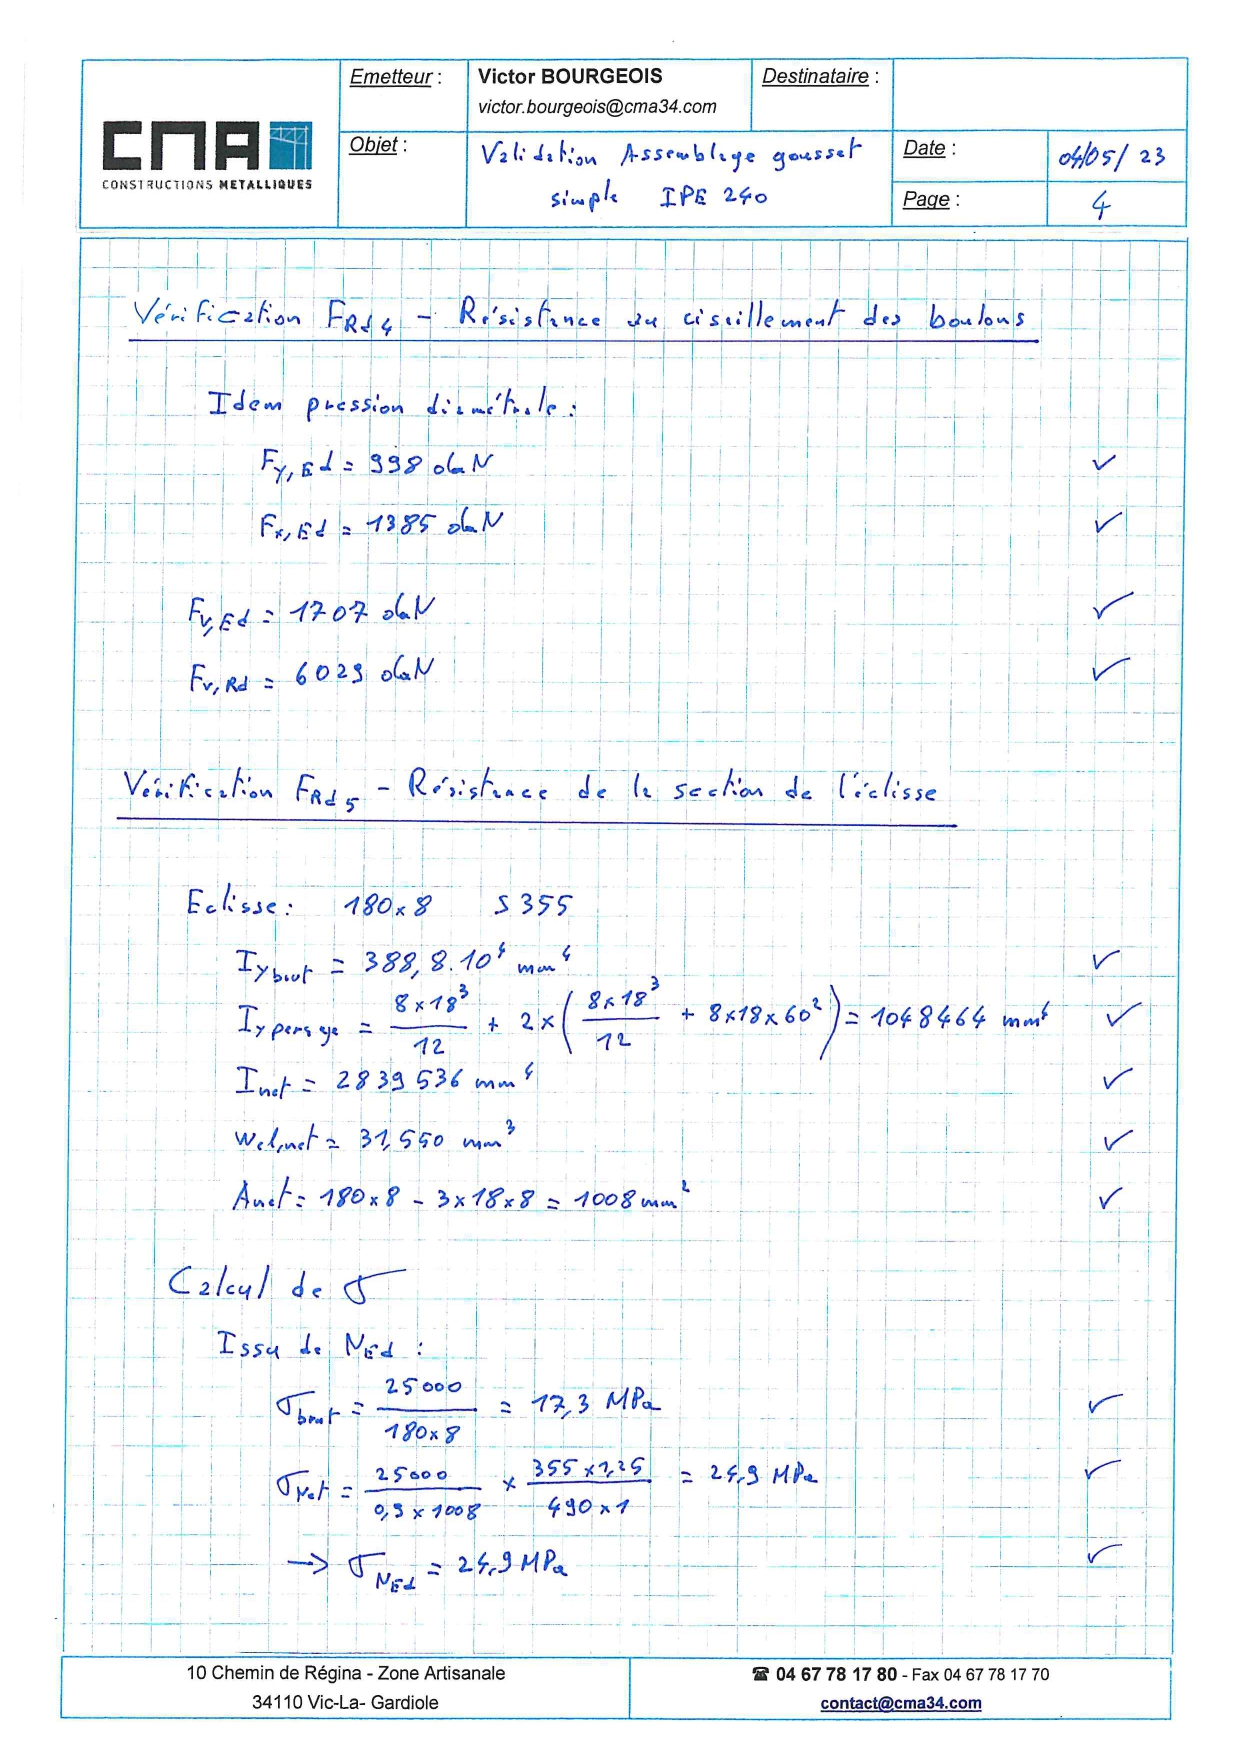 CMA
CONSTRUCTIONS METALLIQUES
Emetteur :
Victor BOURGEOIS
victor.bourgeois@cma34.com
Destinataire :
Objet :
Validation Assemblage gousset
simple IPE 240
Date :
04/05/23
Page :
4
Vérification FRd4 - Résistance au cisaillement des boulons
Idem pression diamétrale :
Fy,Ed = 998 daN ✓
Fx,Ed = 1385 daN ✓
Fv,Ed = 1707 daN ✓
Fv,Rd = 6029 daN ✓
Vérification FRd5 - Résistance de la section de l'éclisse
Eclisse : 180x8 S355
Iy brut = 388,8.10⁴ mm⁴ ✓
Iy perçage = 8x18³/12 + 2x(8x18³/12 + 8x18x60²) = 1048464 mm⁴ ✓
Inet = 2839536 mm⁴ ✓
Wel,net = 31,550 mm³ ✓
Anet = 180x8 - 3x18x8 = 1008 mm² ✓
Calcul de σ
Issu de NEd :
σbrut = 25000/180x8 = 17,3 MPa ✓
σNet = 25000/0,9x1008 x 355x1,25/490x1 = 24,9 MPa ✓
→ σNEd = 24,9 MPa ✓
10 Chemin de Régina - Zone Artisanale
34110 Vic-La- Gardiole
☎ 04 67 78 17 80 - Fax 04 67 78 17 70
contact@cma34.com